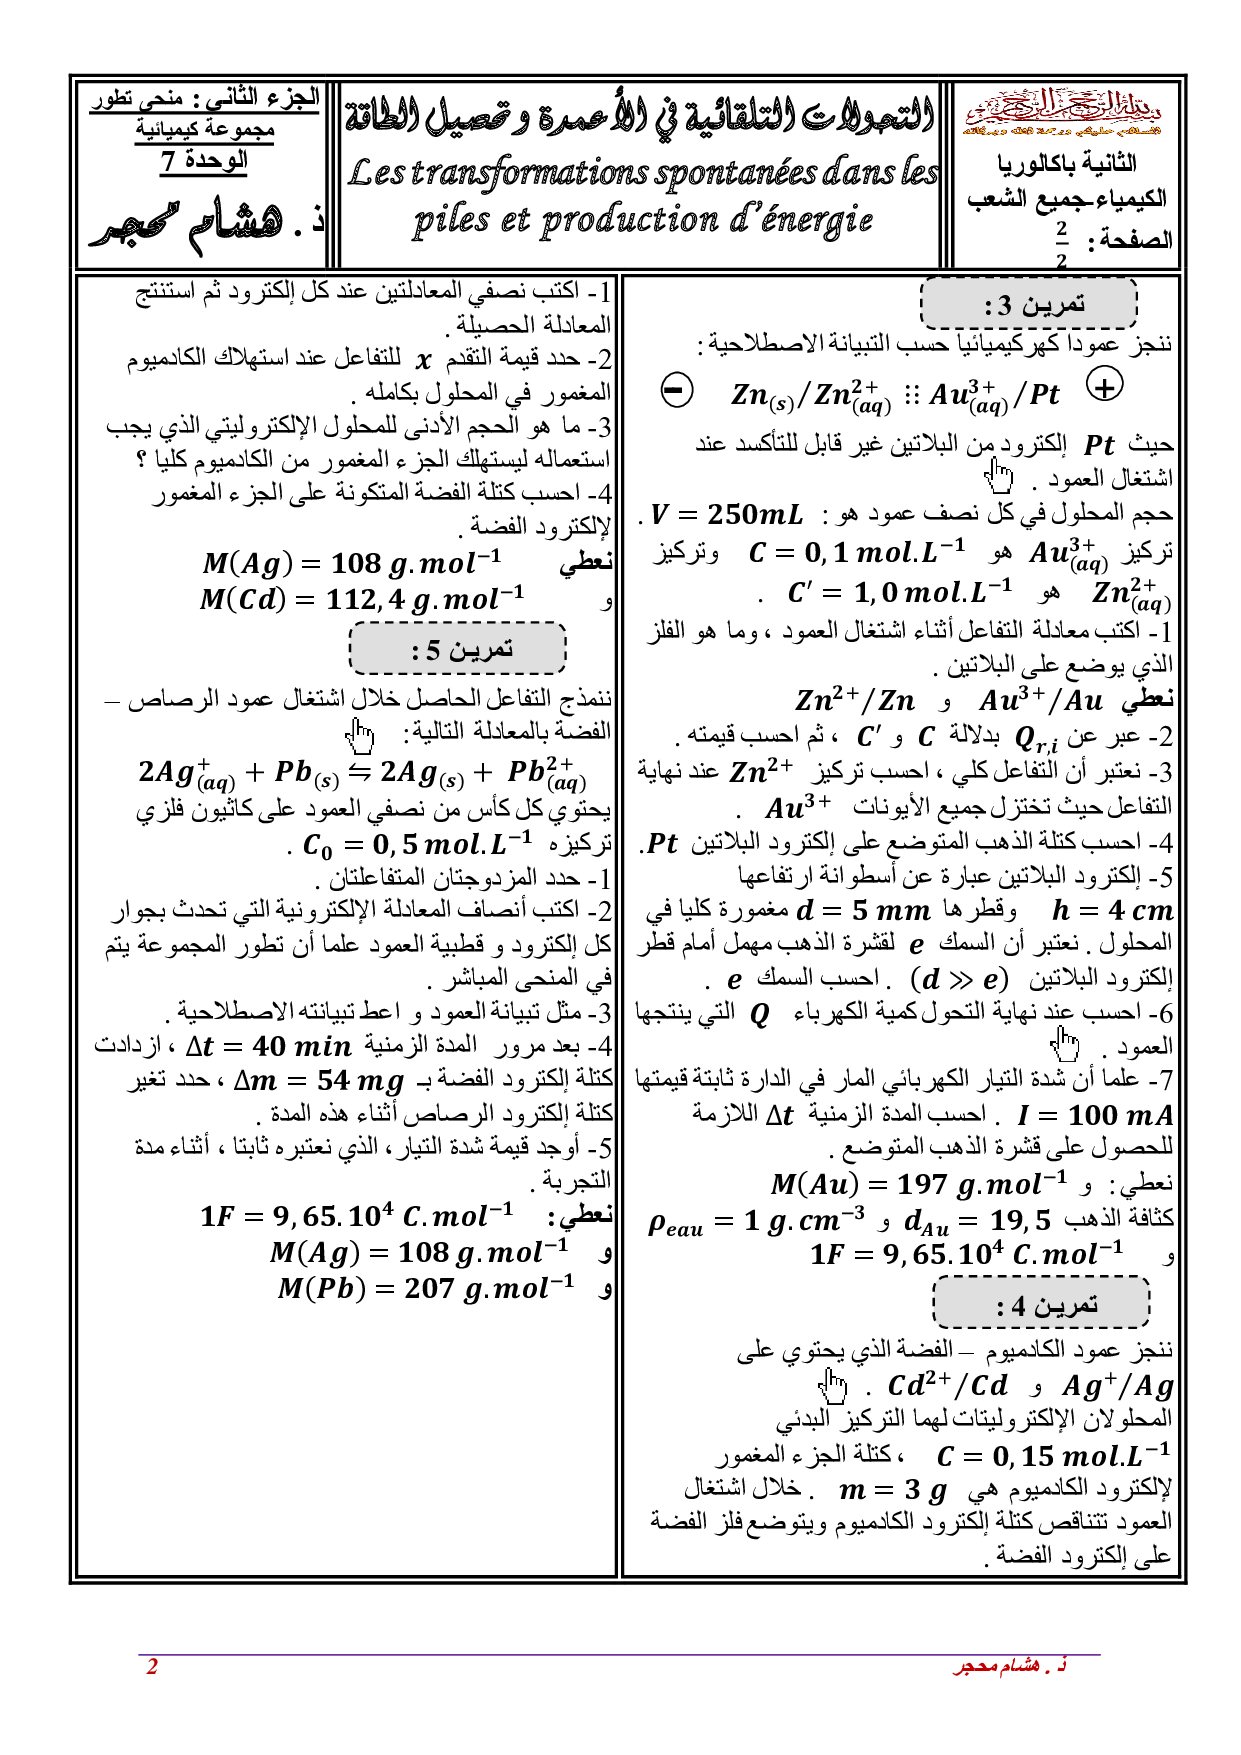 الثانية باكالوريا
الكيمياء-جميع الشعب
الصفحة : 2/2
التحولات التلقائية في الأعمدة وتحصيل الطاقة
Les transformations spontanées dans les
piles et production d'énergie
الجزء الثاني : منحى تطور
مجموعة كيميائية
الوحدة 7
ذ . هشام محجر
تمرين 3 :
ننجز عمودا كهركيميائيا حسب التبيانة الاصطلاحية :
⊖ Zn(s)/Zn²⁺(aq) ∷ Au³⁺(aq)/Pt ⊕
حيث Pt إلكترود من البلاتين غير قابل للتأكسد عند
اشتغال العمود .
حجم المحلول في كل نصف عمود هو : V = 250mL .
تركيز Au³⁺(aq) هو C = 0,1 mol.L⁻¹ وتركيز
Zn²⁺(aq) هو C′ = 1,0 mol.L⁻¹ .
1- اكتب معادلة التفاعل أثناء اشتغال العمود ، وما هو الفلز
الذي يوضع على البلاتين .
نعطي Au³⁺/Au و Zn²⁺/Zn
2- عبر عن Qr,i بدلالة C و C′ ، ثم احسب قيمته .
3- نعتبر أن التفاعل كلي ، احسب تركيز Zn²⁺ عند نهاية
التفاعل حيث تختزل جميع الأيونات Au³⁺ .
4- احسب كتلة الذهب المتوضع على إلكترود البلاتين Pt.
5- إلكترود البلاتين عبارة عن أسطوانة ارتفاعها
h = 4 cm وقطرها d = 5 mm مغمورة كليا في
المحلول . نعتبر أن السمك e لقشرة الذهب مهمل أمام قطر
إلكترود البلاتين (d ≫ e) . احسب السمك e .
6- احسب عند نهاية التحول كمية الكهرباء Q التي ينتجها
العمود .
7- علما أن شدة التيار الكهربائي المار في الدارة ثابتة قيمتها
I = 100 mA . احسب المدة الزمنية Δt اللازمة
للحصول على قشرة الذهب المتوضع .
نعطي: و M(Au) = 197 g.mol⁻¹
كثافة الذهب dAu = 19,5 و ρeau = 1 g.cm⁻³
و 1F = 9,65.10⁴ C.mol⁻¹
تمرين 4 :
ننجز عمود الكادميوم – الفضة الذي يحتوي على
Ag⁺/Ag و Cd²⁺/Cd .
المحلولان الإلكتروليتات لهما التركيز البدئي
C = 0,15 mol.L⁻¹ ، كتلة الجزء المغمور
لإلكترود الكادميوم هي m = 3 g . خلال اشتغال
العمود تتناقص كتلة إلكترود الكادميوم ويتوضع فلز الفضة
على إلكترود الفضة .
1- اكتب نصفي المعادلتين عند كل إلكترود ثم استنتج
المعادلة الحصيلة .
2- حدد قيمة التقدم x للتفاعل عند استهلاك الكادميوم
المغمور في المحلول بكامله .
3- ما هو الحجم الأدنى للمحلول الإلكتروليتي الذي يجب
استعماله ليستهلك الجزء المغمور من الكادميوم كليا ؟
4- احسب كتلة الفضة المتكونة على الجزء المغمور
لإلكترود الفضة .
نعطي M(Ag) = 108 g.mol⁻¹
و M(Cd) = 112,4 g.mol⁻¹
تمرين 5 :
ننمذج التفاعل الحاصل خلال اشتغال عمود الرصاص –
الفضة بالمعادلة التالية:
2Ag⁺(aq) + Pb(s) ⇋ 2Ag(s) + Pb²⁺(aq)
يحتوي كل كأس من نصفي العمود على كاثيون فلزي
تركيزه C₀ = 0,5 mol.L⁻¹ .
1- حدد المزدوجتان المتفاعلتان .
2- اكتب أنصاف المعادلة الإلكترونية التي تحدث بجوار
كل إلكترود و قطبية العمود علما أن تطور المجموعة يتم
في المنحى المباشر .
3- مثل تبيانة العمود و اعط تبيانته الاصطلاحية .
4- بعد مرور المدة الزمنية Δt = 40 min ، ازدادت
كتلة إلكترود الفضة بـ Δm = 54 mg ، حدد تغير
كتلة إلكترود الرصاص أثناء هذه المدة .
5- أوجد قيمة شدة التيار، الذي نعتبره ثابتا ، أثناء مدة
التجربة .
نعطي: 1F = 9,65.10⁴ C.mol⁻¹
و M(Ag) = 108 g.mol⁻¹
و M(Pb) = 207 g.mol⁻¹
ذ . هشام محجر
2